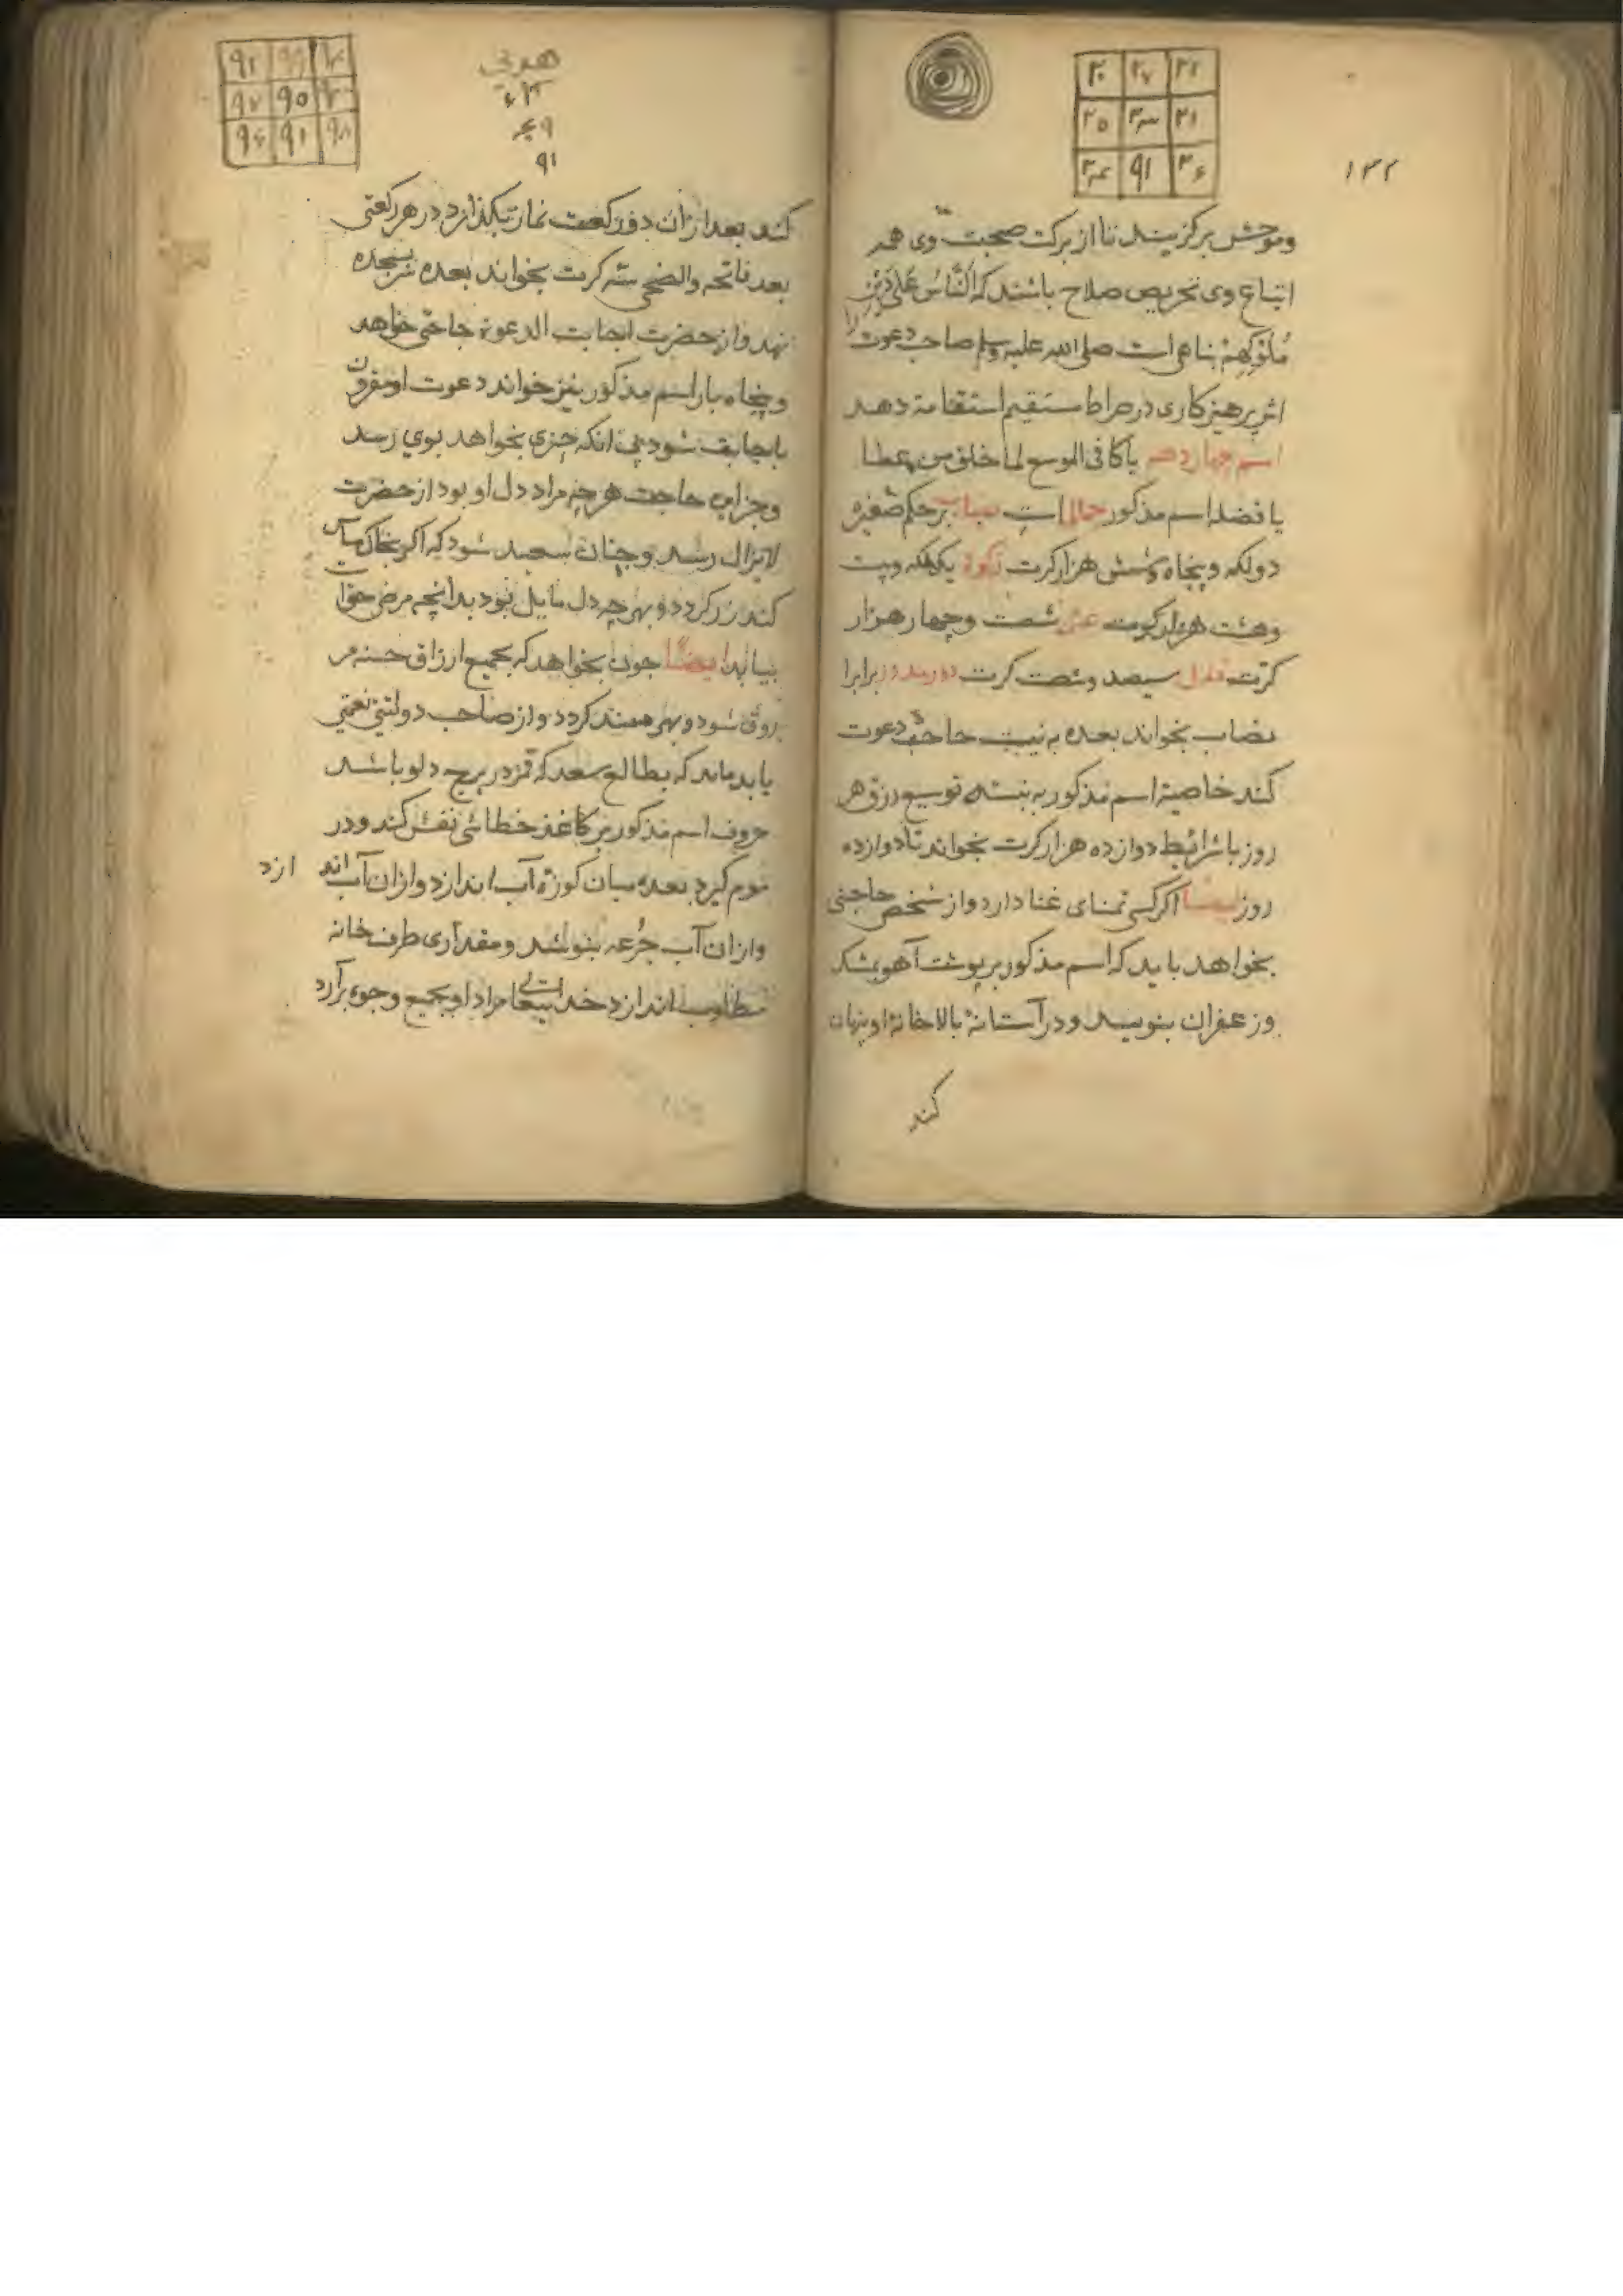 ۱۳۲
۲۰ ۲۷ ۲۲
۲۵ ۲۳ ۲۱
۲۴ ۹۱ ۲۶
وموحش برکزیند تا از برکت صحبت وی همه
اتباع وی تحریص صلاح باشند که النَّاسُ عَلی دِین
مُلُوکِهِمْ صلی الله علیه وسلم صاحب دعوت را
اثر پرهیزکاری در صراط مستقیم استقامة دهد
اسم چهاردهم یا کافی الموسع لما خلق من عطایا
یا فضله اسم مذکور است بر حکم صغیره
دو لکه و پنجاه وشش هزار کرت زکوة یک لکه وبیت
وهشت هزار کرت عشر شصت وچهار هزار
کرت قفل سیصد وشصت کرت دور مدور برابر
نصاب بخواند بعده به نیت حاجت دعوت
کند خاصیة اسم مذکور به نیت توسیع رزق هر
روز با شرائط دوازده هزار کرت بخواند تا دوازده
روز ایضا اکر کسی تمنای غنا دارد واز شخص حاجتی
بخواهد باید که اسم مذکور بر پوست آهو بمشک
وزعفران بنویسد ودر آستانهٔ بالا خانهٔ او پنهان
کند
۹۲ ۹۹ ۹۴
۹۷ ۹۵ ۹۳
۹۶ ۹۱ ۹۸
۹۱
کند بعد ازان دو رکعت نماز بکذارد در هر رکعتی
بعد فاتحه والضحی سه کرت بخواند بعده سر بسجده
نهد واز حضرت اجابت الدعوة حاجتی خواهد
وپنجاه بار اسم مذکور نیز خواند دعوت او مقرون
باجابت شود بی انکه چیزی بخواهد بوی رسد
وجز این حاجت هر چه مراد دل او بود از حضرت
لایزال رسد وچنان سعید شود که اکر بخاک مساس
کند زر کردد وبهر چه دل مایل بود بدانچه مرضی حق است
بیابد ایضًا چون بخواهد که بجمیع ارزاق حسنه
مرزوق شود وبهره مند کردد واز صاحب دولتی نعمتی
یابد باید که بطالع سعد که قمر در برج دلو باشد
حروف اسم مذکور بر کاغذ خطائی نقش کند ودر
موم کیرد بعده میان کوزهٔ آب اندازد وازان آب
وازان آب جُرعه بنوشد ومقداری طرف خانه
مطلوب اندازد خدایتعالی مراد او بجمیع وجوه برآرد